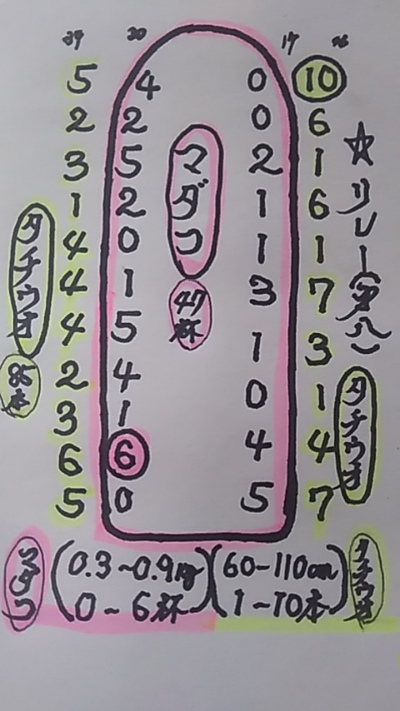 39 30 17 46
5 4 0 10
2 2 0 6
3 5 2 1
1 2 1 6
4 0 1 1
4 1 3 7
4 5 1 3
2 4 0 1
3 1 4 4
6 6 5 7
5 0
☆リレー(第八)
マダコ
47杯
タチウオ
85本
タチウオ
マダコ (0.3~0.9kg 0~6杯) (60-110cm 1~10本) タチウオ